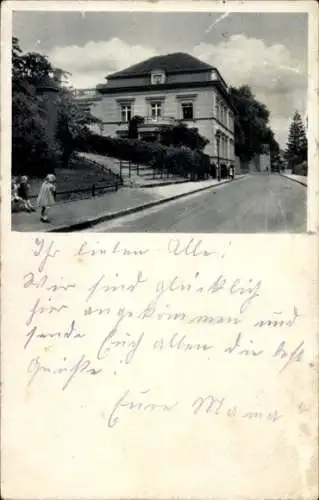 Ihr lieben Alle!
Wir sind glücklich
hier angekommen und
sende Euch allen die besten
Grüße!
Eure Mama